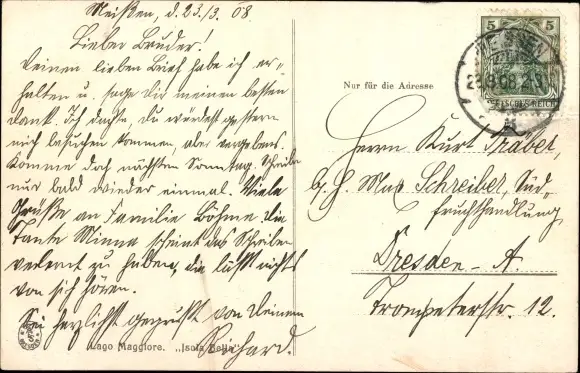 Meißen, d. 23./3. 08
Lieber Bruder!
Deinen lieben Brief habe ich er-
halten u. sage Dir meinen besten
Dank. Ich dachte, du würdest gestern
mich besuchen kommen, aber vergebens.
Komme doch nächsten Sonntag. Schreibe
nur bald wieder einmal. Viele
Grüße an Familie Böhme. Die
Tante Minna scheint das Schreiben
verlernt zu haben, die läßt nichts
von sich hören.
Sei herzlichst gegrüßt von Deinem
Richard.
Lago Maggiore. „Isola Bella"
5 5
MEISSEN
DEUTSCHES REICH
Nur für die Adresse
Herrn Kurt Träber,
b. H. Max Schreiber, Süd-
fruchthandlung
Dresden-A.
Trompeterstr. 12.